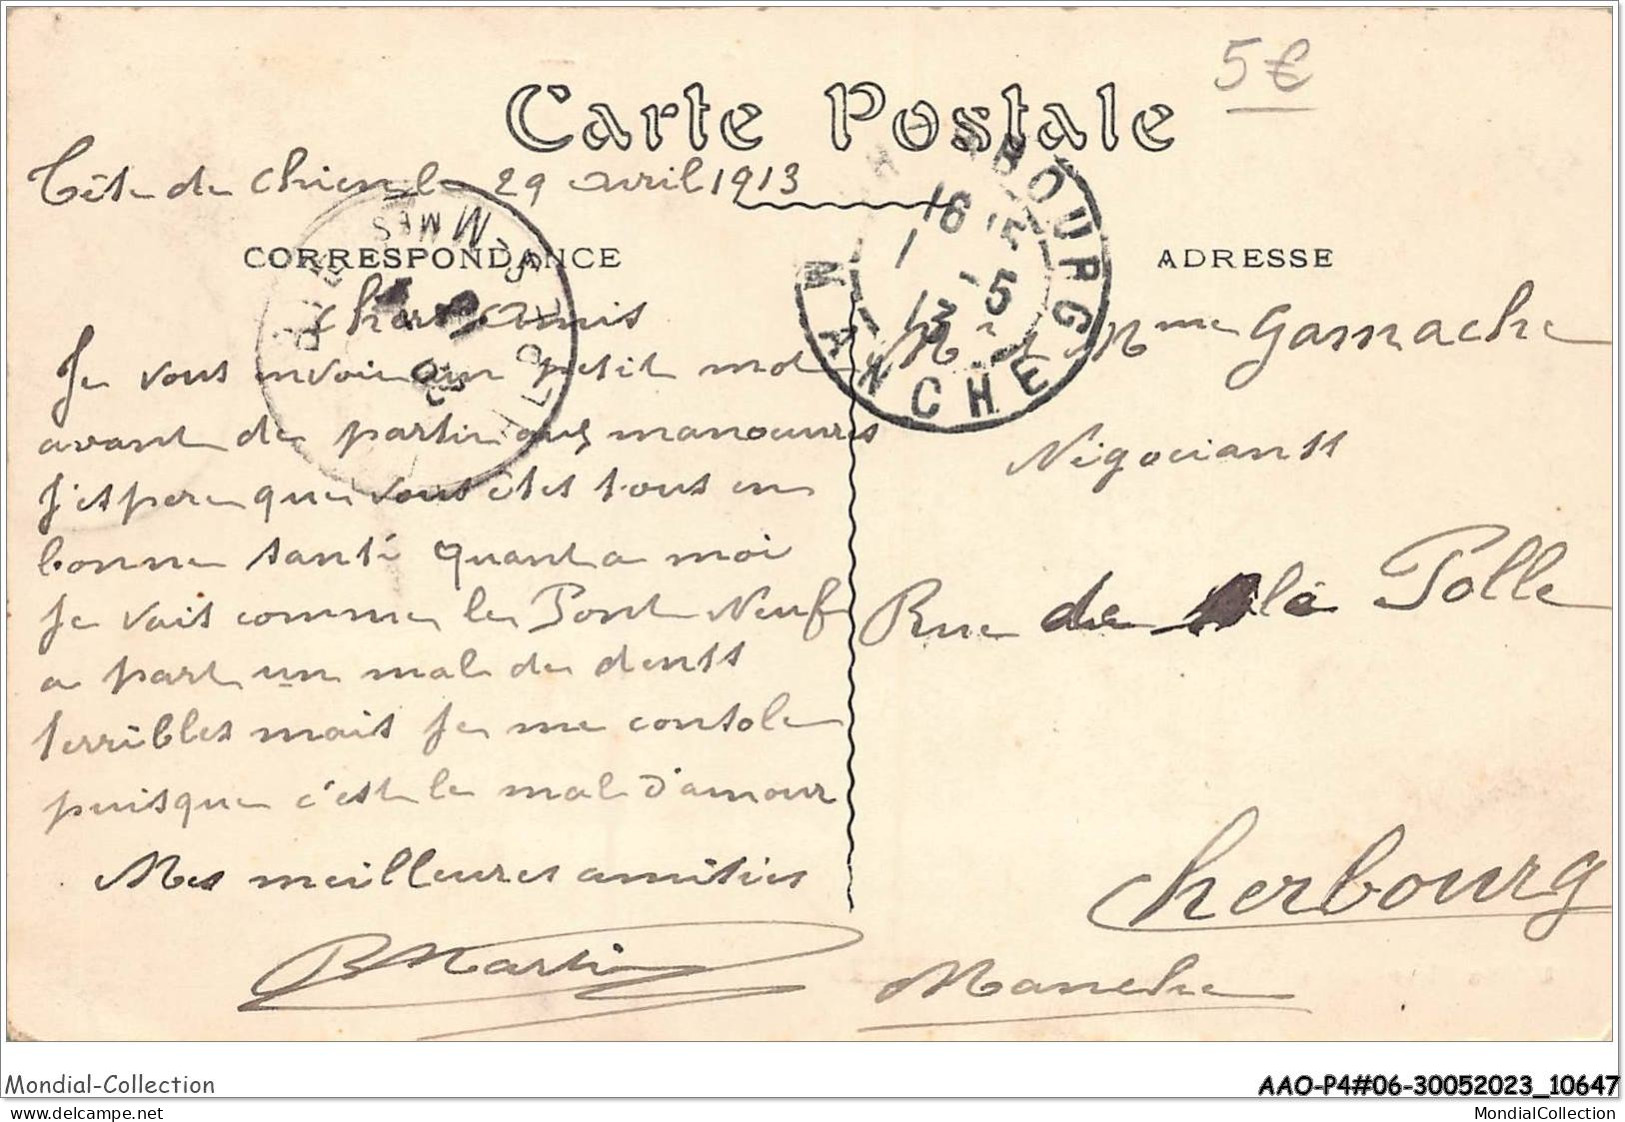 5€
Carte Postale
Tête de Chien le 29 avril 1913
CORRESPONDANCE
Chers Amis
Je vous envoie un petit mot
avant de partir aux manoeuvres
J'espere que vous êtes tous en
bonne santé quant a moi
Je vais comme le Pont Neuf
a part un mal de dents
terribles mais je me console
puisque c'est le mal d'amour
Mes meilleures amitiés
Martin
16 15
1 -5
13
BOURG
MANCHE
ADRESSE
Mr et Mme Gamache
Négociants
Rue de la Polle
Cherbourg
Manche
Mondial-Collection
AAO-P4#06-30052023_10647
www.delcampe.net
MondialCollection